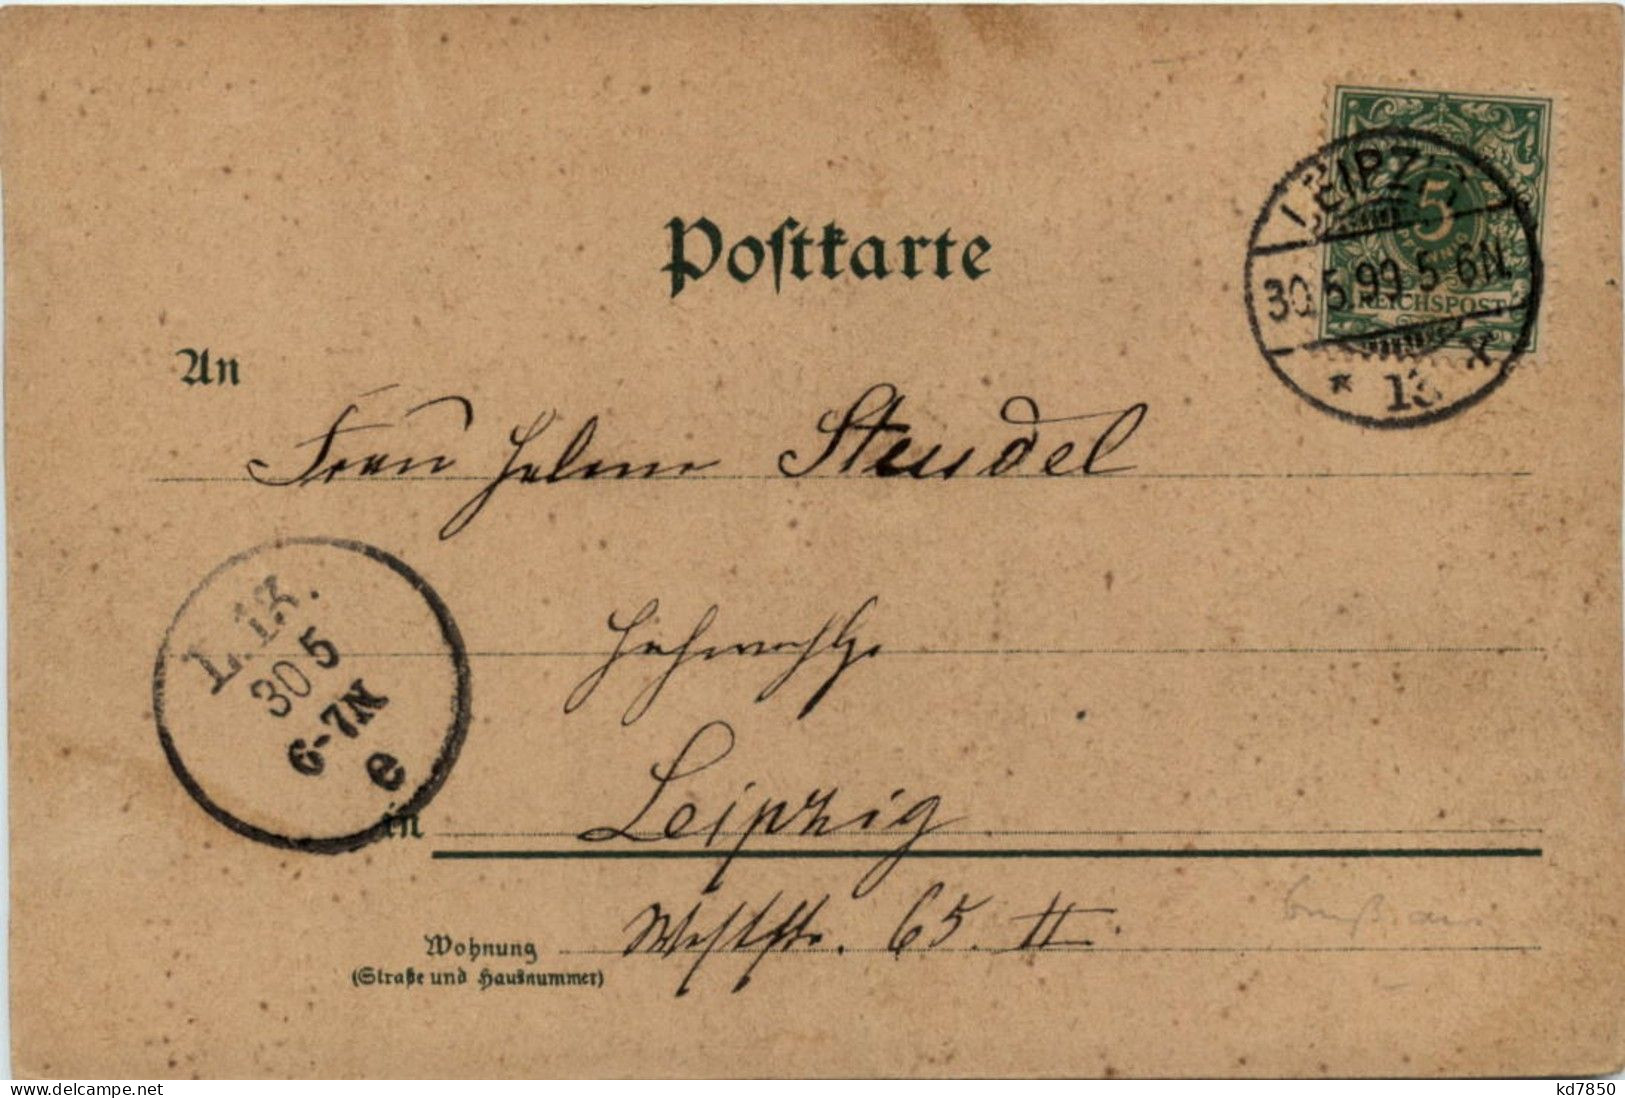 Postkarte
5
REICHSPOST
LEIPZIG
30.5.99 5-6N.
* 13 *
An
Frau Helene Steudel
L.13.
30 5
6-7N
e
in Leipzig
Wohnung Weststr. 65. II.
(Straße und Hausnummer)
Gruß aus
www.delcampe.net
kd7850